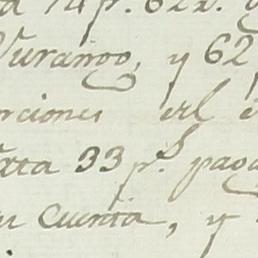 14 p. 622.
Durango, y 62
rciones el
xta 33 p.s pag
su cuenta, y